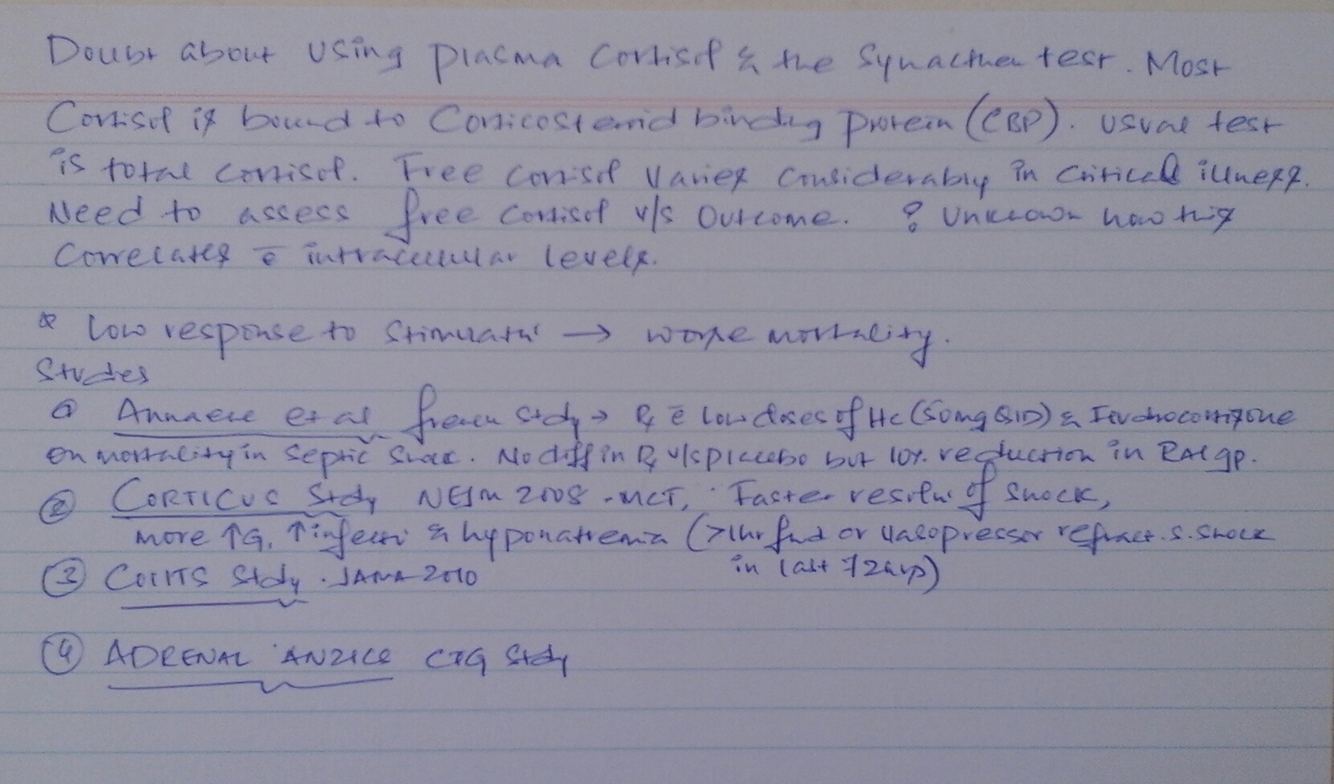 Doubt about using plasma cortisol & the Synacthen test. Most
Cortisol is bound to Corticosteroid binding protein (CBP). usual test
is total cortisol. Free cortisol varies considerably in critical illness.
Need to assess free cortisol v/s outcome. ? Unknown how this
correlates c̄ intracellular levels.
* low response to stimulatn → worse mortality.
Studies
① Annaene et al french stdy → Rx c̄ low doses of Hc (50mg QID) & fludrocortisone
on mortality in Septic Shock. No diff in Rx v/s placebo but 10% reduction in RAI gp.
② CORTICUS Stdy NEJM 2008 - MCT, Faster resoln of shock,
more ↑G, ↑infectn & hyponatremia (>1hr fluid or vasopressor refract. s. shock
in last 72hrs)
③ COIITS Stdy. JAMA 2010
④ ADRENAL ANZICS CTG Stdy